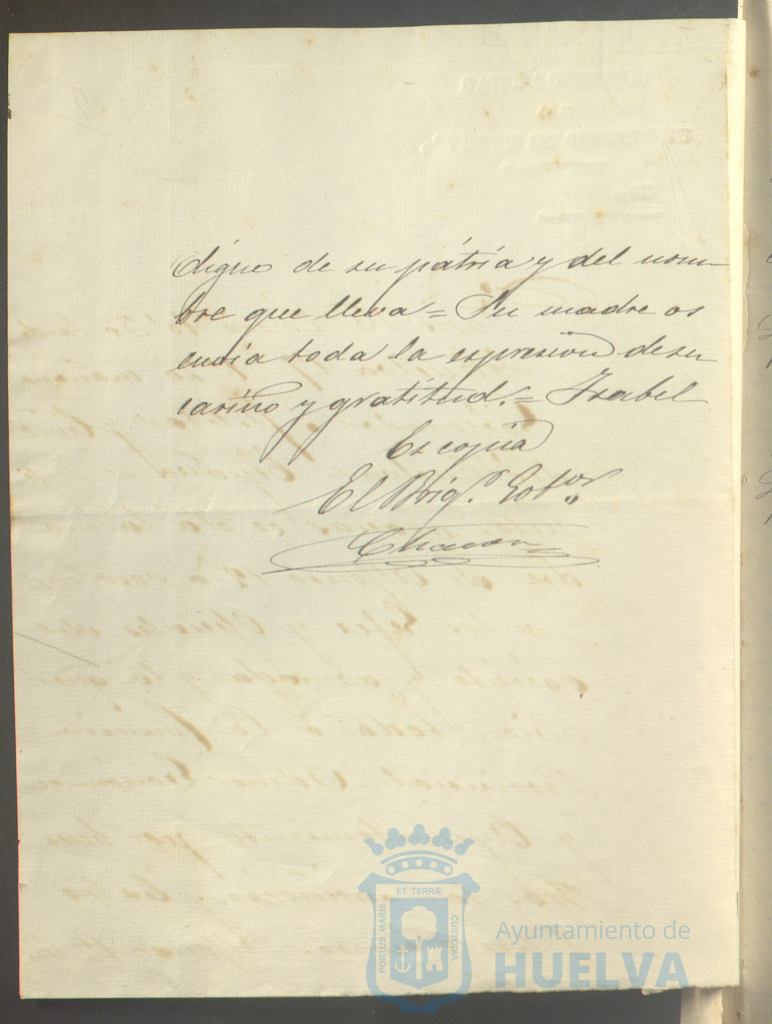 digno de su pátria y del nom-
bre que lleva = Su madre os
envia toda la espresion de su
cariño y gratitud. = Isabel
Es copia
El Brigr. Gobor
ET TERRÆ
PORTUS MARIS
CUSTODIA
Ayuntamiento de
HUELVA